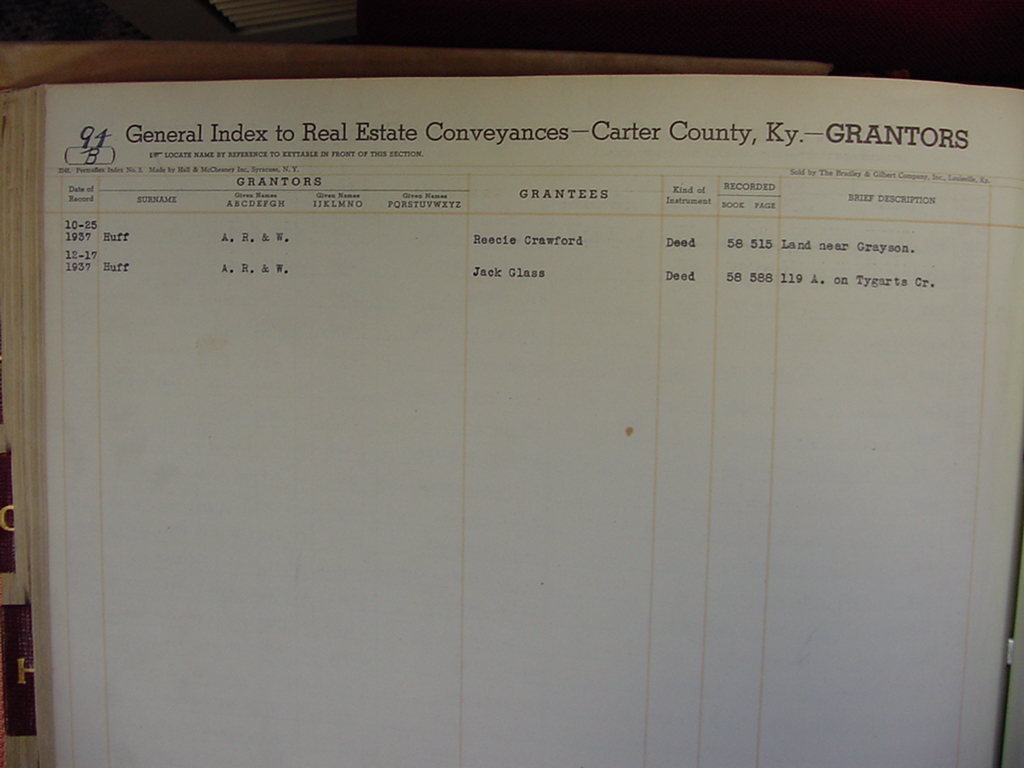 94 General Index to Real Estate Conveyances—Carter County, Ky.—GRANTORS
B LOCATE NAME BY REFERENCE TO KEYTABLE IN FRONT OF THIS SECTION.
Index No. 2. Made by Hall & McChesney Inc, Syracuse, N. Y. Sold by The Bradley & Gilbert Company, Inc., Louisville, Ky.
Date of Record GRANTORS GRANTEES Kind of Instrument RECORDED BRIEF DESCRIPTION
SURNAME Given Names ABCDEFGH Given Names IJKLMNO Given Names PQRSTUVWXYZ BOOK PAGE
10-25
1937 Huff A. R. & W. Reecie Crawford Deed 58 515 Land near Grayson.
12-17
1937 Huff A. R. & W. Jack Glass Deed 58 588 119 A. on Tygarts Cr.
H